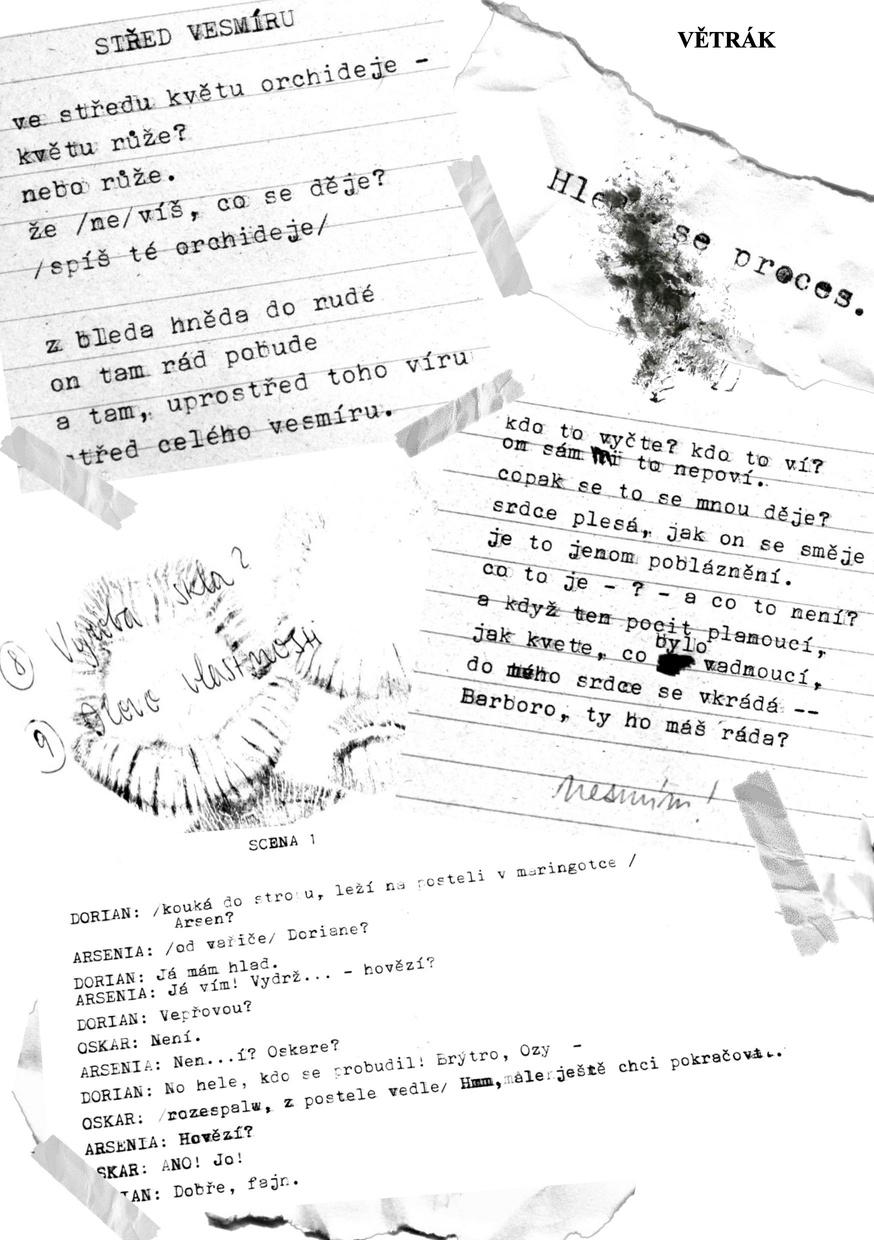 STŘED VESMÍRU
ve středu květu orchideje -
květu růže?
nebo růže.
že /ne/víš, co se děje?
/spíš té orchideje/
z bleda hněda do rudé
on tam rád pobude
a tam, uprostřed toho víru
střed celého vesmíru.
VĚTRÁK
se proces.
kdo to vyčte? kdo to ví?
on sám mi to nepoví.
copak se to se mnou děje?
srdce plesá, jak on se směje
je to jenom pobláznění.
co to je - ? - a co to není?
a když ten pocit plamoucí,
jak kvete, co bylo vadnoucí,
do mého srdce se vkrádá --
Barboro, ty ho máš ráda?
nesmím!
8 Výroba skla?
9) Olovo vlastnosti
SCENA 1
DORIAN: /kouká do stropu, leží na posteli v maringotce /
Arsen?
ARSENIA: /od vařiče/ Doriane?
DORIAN: Já mám hlad.
ARSENIA: Já vím! Vydrž... - hovězí?
DORIAN: Vepřovou?
OSKAR: Není.
ARSENIA: Nen...í? Oskare?
DORIAN: No hele, kdo se probudil! Brýtro, Ozy -
OSKAR: /rozespalw, z postele vedle/ Hmm, ale ještě chci pokračovat..
ARSENIA: Hovězí?
SKAR: ANO! Jo!
IAN: Dobře, fajn.